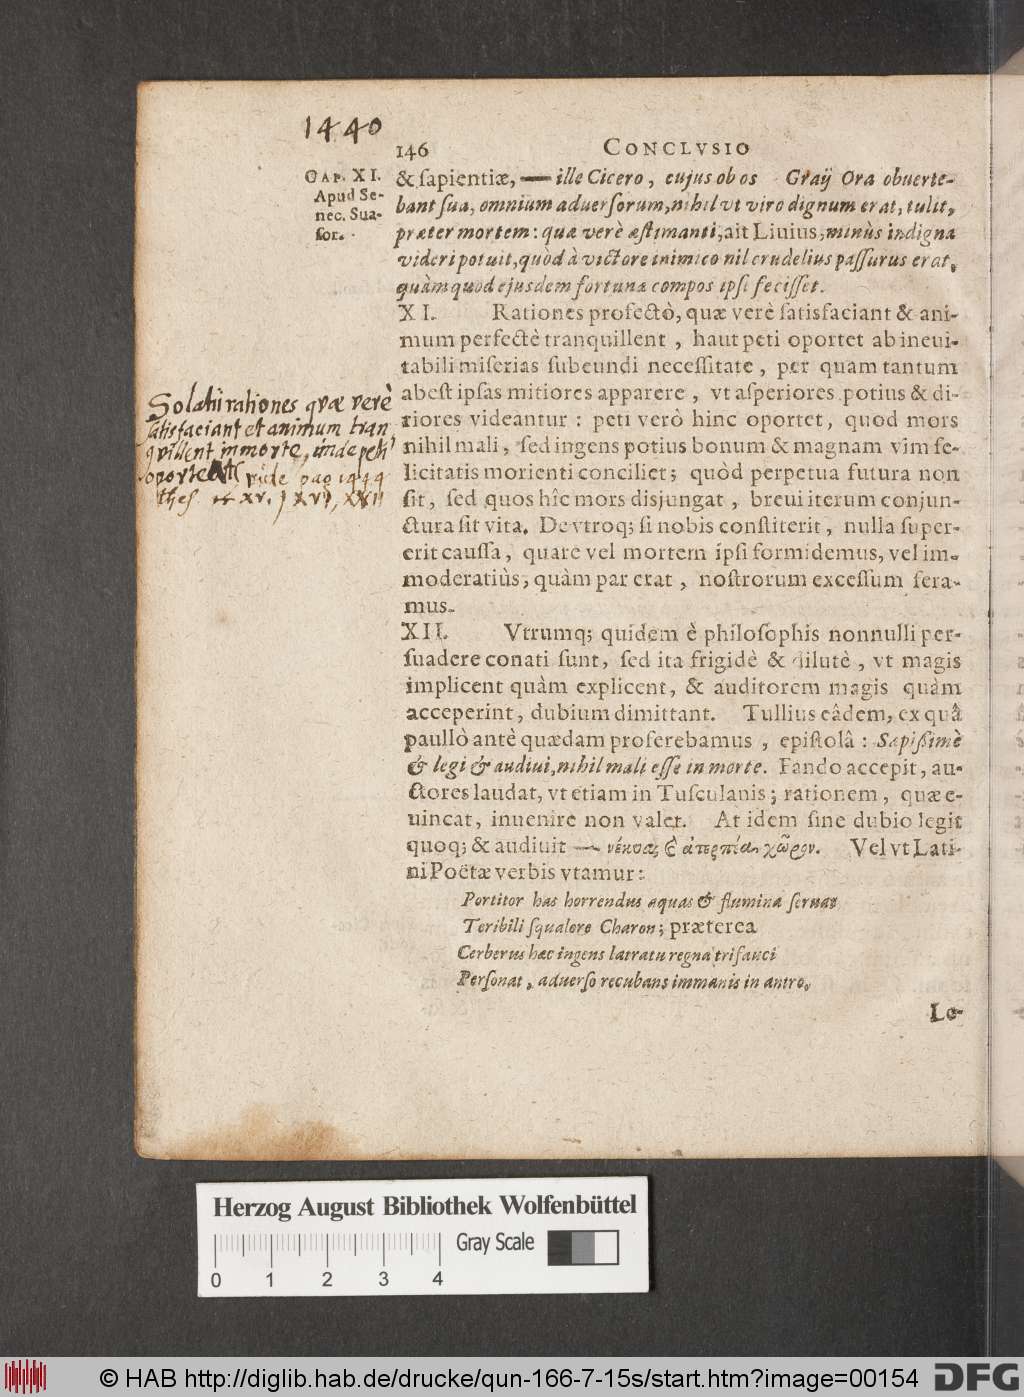 1440
146 CONCLVSIO
CAP. XI.
Apud Se-
nec. Sua-
sor.
& sapientiæ, — ille Cicero, cujus ob os Graij Ora obuerte-
bant sua, omnium aduersorum, nihil vt viro dignum erat, tulit,
præter mortem: quæ verè æstimanti, ait Liuius, minùs indigna
videri potuit, quòd à victore inimico nil crudelius passurus erat,
quàm quod ejusdem fortunæ compos ipsi fecisset.
XI. Rationes profectò, quæ verè satisfaciant & ani-
mum perfectè tranquillent, haut peti oportet ab ineui-
tabili miserias subeundi necessitate, per quam tantum
abest ipsas mitiores apparere, vt asperiores potius & di-
riores videantur: peti verò hinc oportet, quod mors
nihil mali, sed ingens potius bonum & magnam vim fe-
licitatis morienti conciliet; quòd perpetua futura non
sit, sed quos hîc mors disjungat, breui iterum conjun-
ctura sit vita. De vtroq; si nobis constiterit, nulla super-
erit caussa, quare vel mortem ipsi formidemus, vel im-
moderatiùs, quàm par erat, nostrorum excessum fera-
mus.
Solatii rationes quæ verè
satisfaciant et animum tran
quillent in morte, unde peti
oporteat vide pag 1444
thes. XV. XVI, XXII
XII. Vtrumq; quidem è philosophis nonnulli per-
suadere conati sunt, sed ita frigidè & dilutè, vt magis
implicent quàm explicent, & auditorem magis quàm
acceperint, dubium dimittant. Tullius eâdem, ex quâ
paullò antè quædam proferebamus, epistolâ: Sapißimè
& legi & audiui, nihil mali esse in morte. Fando accepit, au-
ctores laudat, vt etiam in Tusculanis; rationem, quæ e-
uincat, inuenire non valet. At idem sine dubio legit
quoq; & audiuit — νέκυας καὶ ἀτερπέα χῶρον. Vel vt Lati-
ni Poëtæ verbis vtamur:
Portitor has horrendus aquas & flumina seruat
Teribili squalore Charon; præterea
Cerberus hæc ingens latratu regna trifauci
Personat, aduerso recubans immanis in antro.
Le-
Herzog August Bibliothek Wolfenbüttel
Gray Scale
0 1 2 3 4
© HAB http://diglib.hab.de/drucke/qun-166-7-15s/start.htm?image=00154
DFG